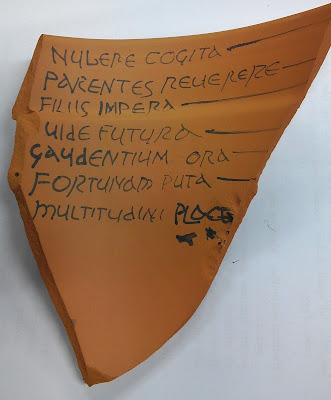 NUBERE COGITA
PARENTES REUERERE
FILIIS IMPERA
UIDE FUTURA
GAUDENTIUM ORA
FORTUNAM PUTA
MULTITUDINI PLACE